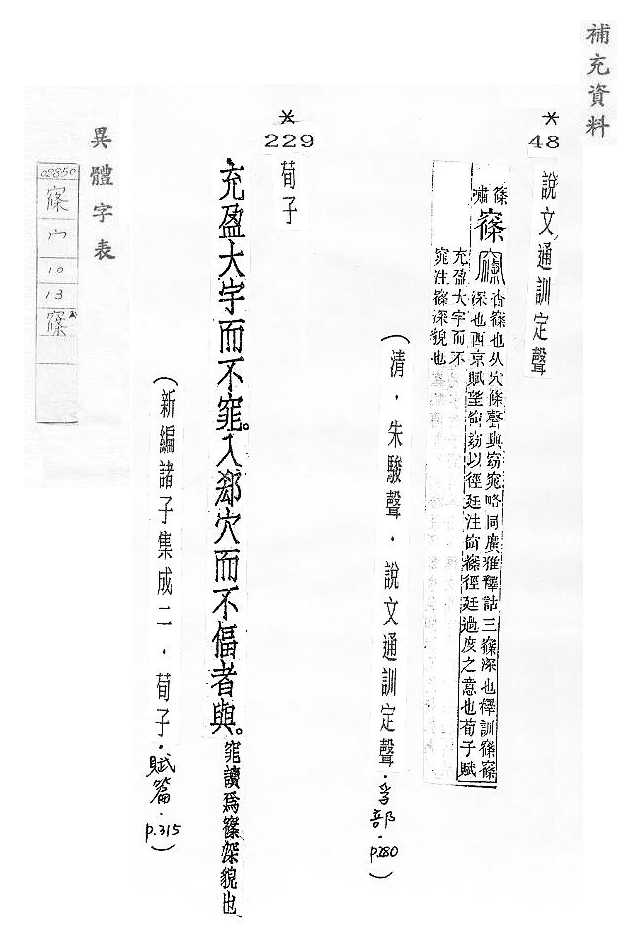 補充資料
*
48
說文通訓定聲
篠嘯
窱
杳窱也从穴條聲與窈窕略同廣雅釋詁三窱深也釋訓窱窱
深也西京賦望䆗窱以徑廷注䆗窱徑廷過度之意也荀子賦
充盈大宇而不
窕注窱深貌也
(清.朱駿聲.說文通訓定聲.孚部.p.280)
*
229
荀子
充盈大宇而不窕。入郤穴而不偪者與。窕讀爲窱深貌也
(新編諸子集成二.荀子.賦篇.p.315)
異體字表
02850
宀
10
13
窱